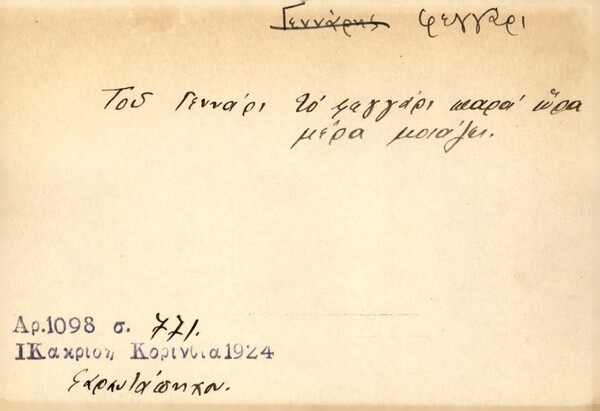 Γεννάρης φεγγάρι
Τοῦ Γεννάρι τό φεγγάρι παρά ὥρα
μέρα μοιάζει.
Αρ.1098 σ. 771.
ΙΚακριση Κορινθια1924
Σαραντάπηχον.